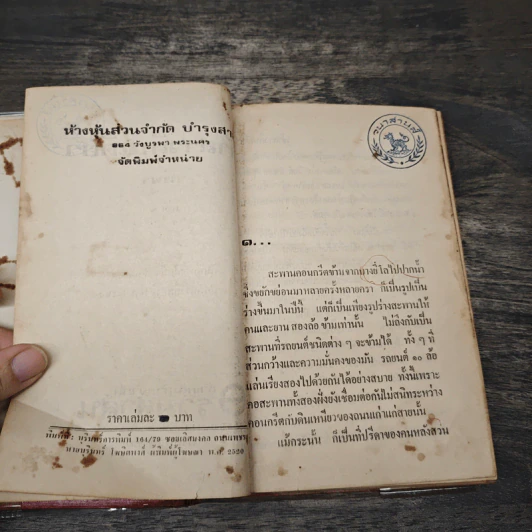 ห้างหุ้นส่วนจำกัด บำรุงสา
๒๑๔ วังบูรพา พระนคร
จัดพิมพ์จำหน่าย
ราคาเล่มละ บาท
พิมพ์ที่: บุรินทร์การพิมพ์ 161/79 ซอยเลิศมงคล
นายบุรินทร์ โฆษิตสาลี ผู้พิมพ์ผู้โฆษณา พ.ศ. 2520
วนาสายสุ์
ด...
สะพานคอนกรีตข้ามจากบางยี่โลไปปากน้ำ
ซึ่งขยักขย่อนมาหลายครั้งหลายครา ก็เป็นรูปเป็น
ร่างขึ้นมาในปีนี้ แต่ก็เป็นเพียงรูปร่างสะพานให้
คนและยาน สองล้อ ข้ามเท่านั้น ไม่ถึงกับเป็น
สะพานที่รถยนต์ชนิดต่าง ๆ จะข้ามได้ ทั้ง ๆ ที่
ส่วนกว้างและความมั่นคงของมัน รถยนต์ ๑๐ ล้อ
แล่นเรียงสองไปด้วยกันได้อย่างสบาย ทั้งนี้เพราะ
คอสะพานทั้งสองฝั่งยังเชื่อมต่อกันไม่สนิทระหว่าง
คอนกรีตกับดินเหนียวของถนนเก่าแก่สายนั้น
แม้กระนั้น ก็เป็นที่ปรีดาของคนหลังสวน